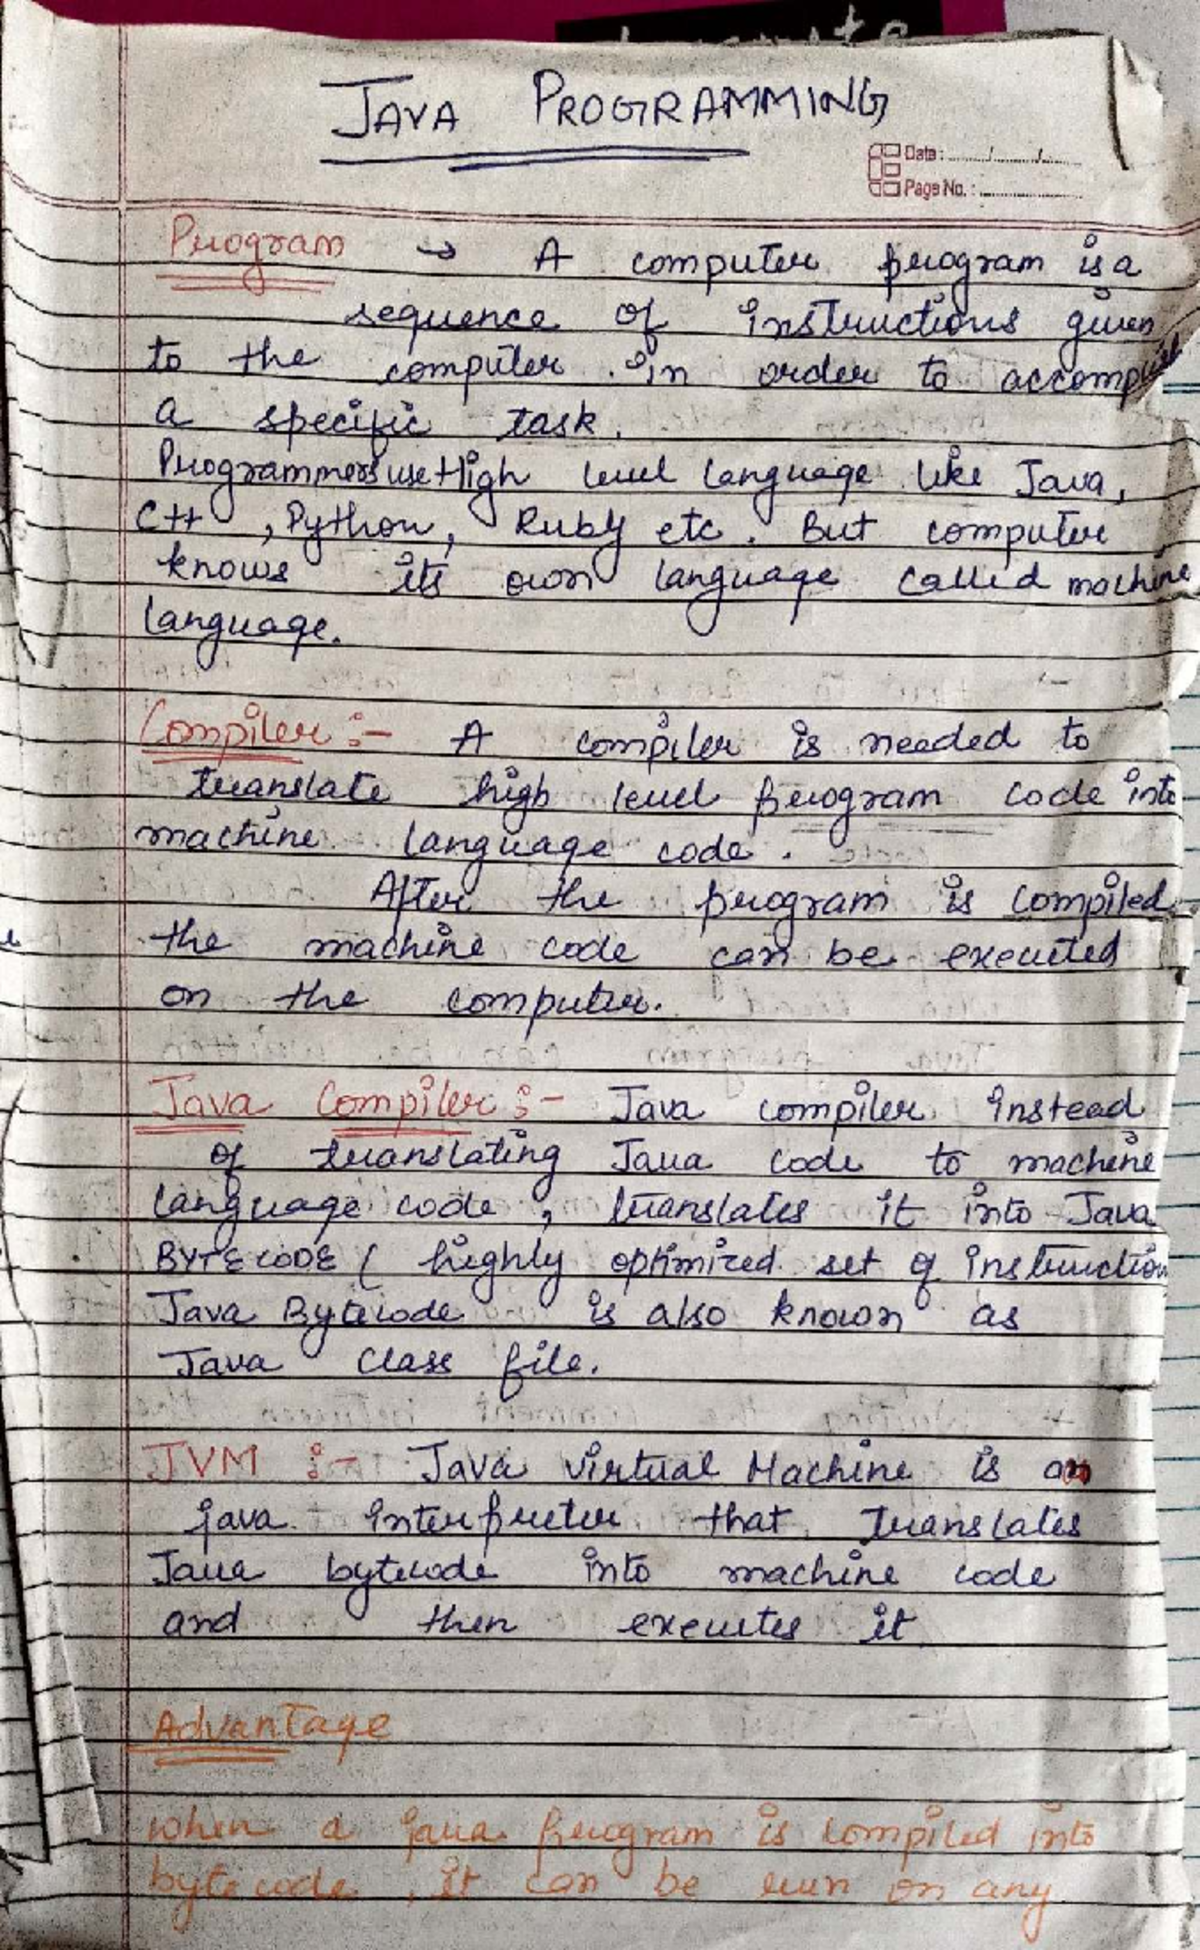 JAVA PROGRAMMING
Date : ......./......./.......
Page No. : ................
Program → A computer program is a
sequence of instructions given
to the computer in order to accomplish
a specific task.
Programmers use High level language like Java,
C++, Python, Ruby etc. But computer
knows its own language called machine
language.
Compiler :- A compiler is needed to
translate high level program code into
machine language code.
After the program is compiled
the machine code can be executed
on the computer.
Java Compiler :- Java compiler instead
of translating Java code to machine
language code, translates it into Java
BYTECODE ( highly optimized set of instruction
Java Bytecode is also known as
Java class file.
JVM :- Java Virtual Machine is an
java interpreter that translates
Java bytecode into machine code
and then executes it
Advantage
when a java program is compiled into
bytecode, it can be run on any